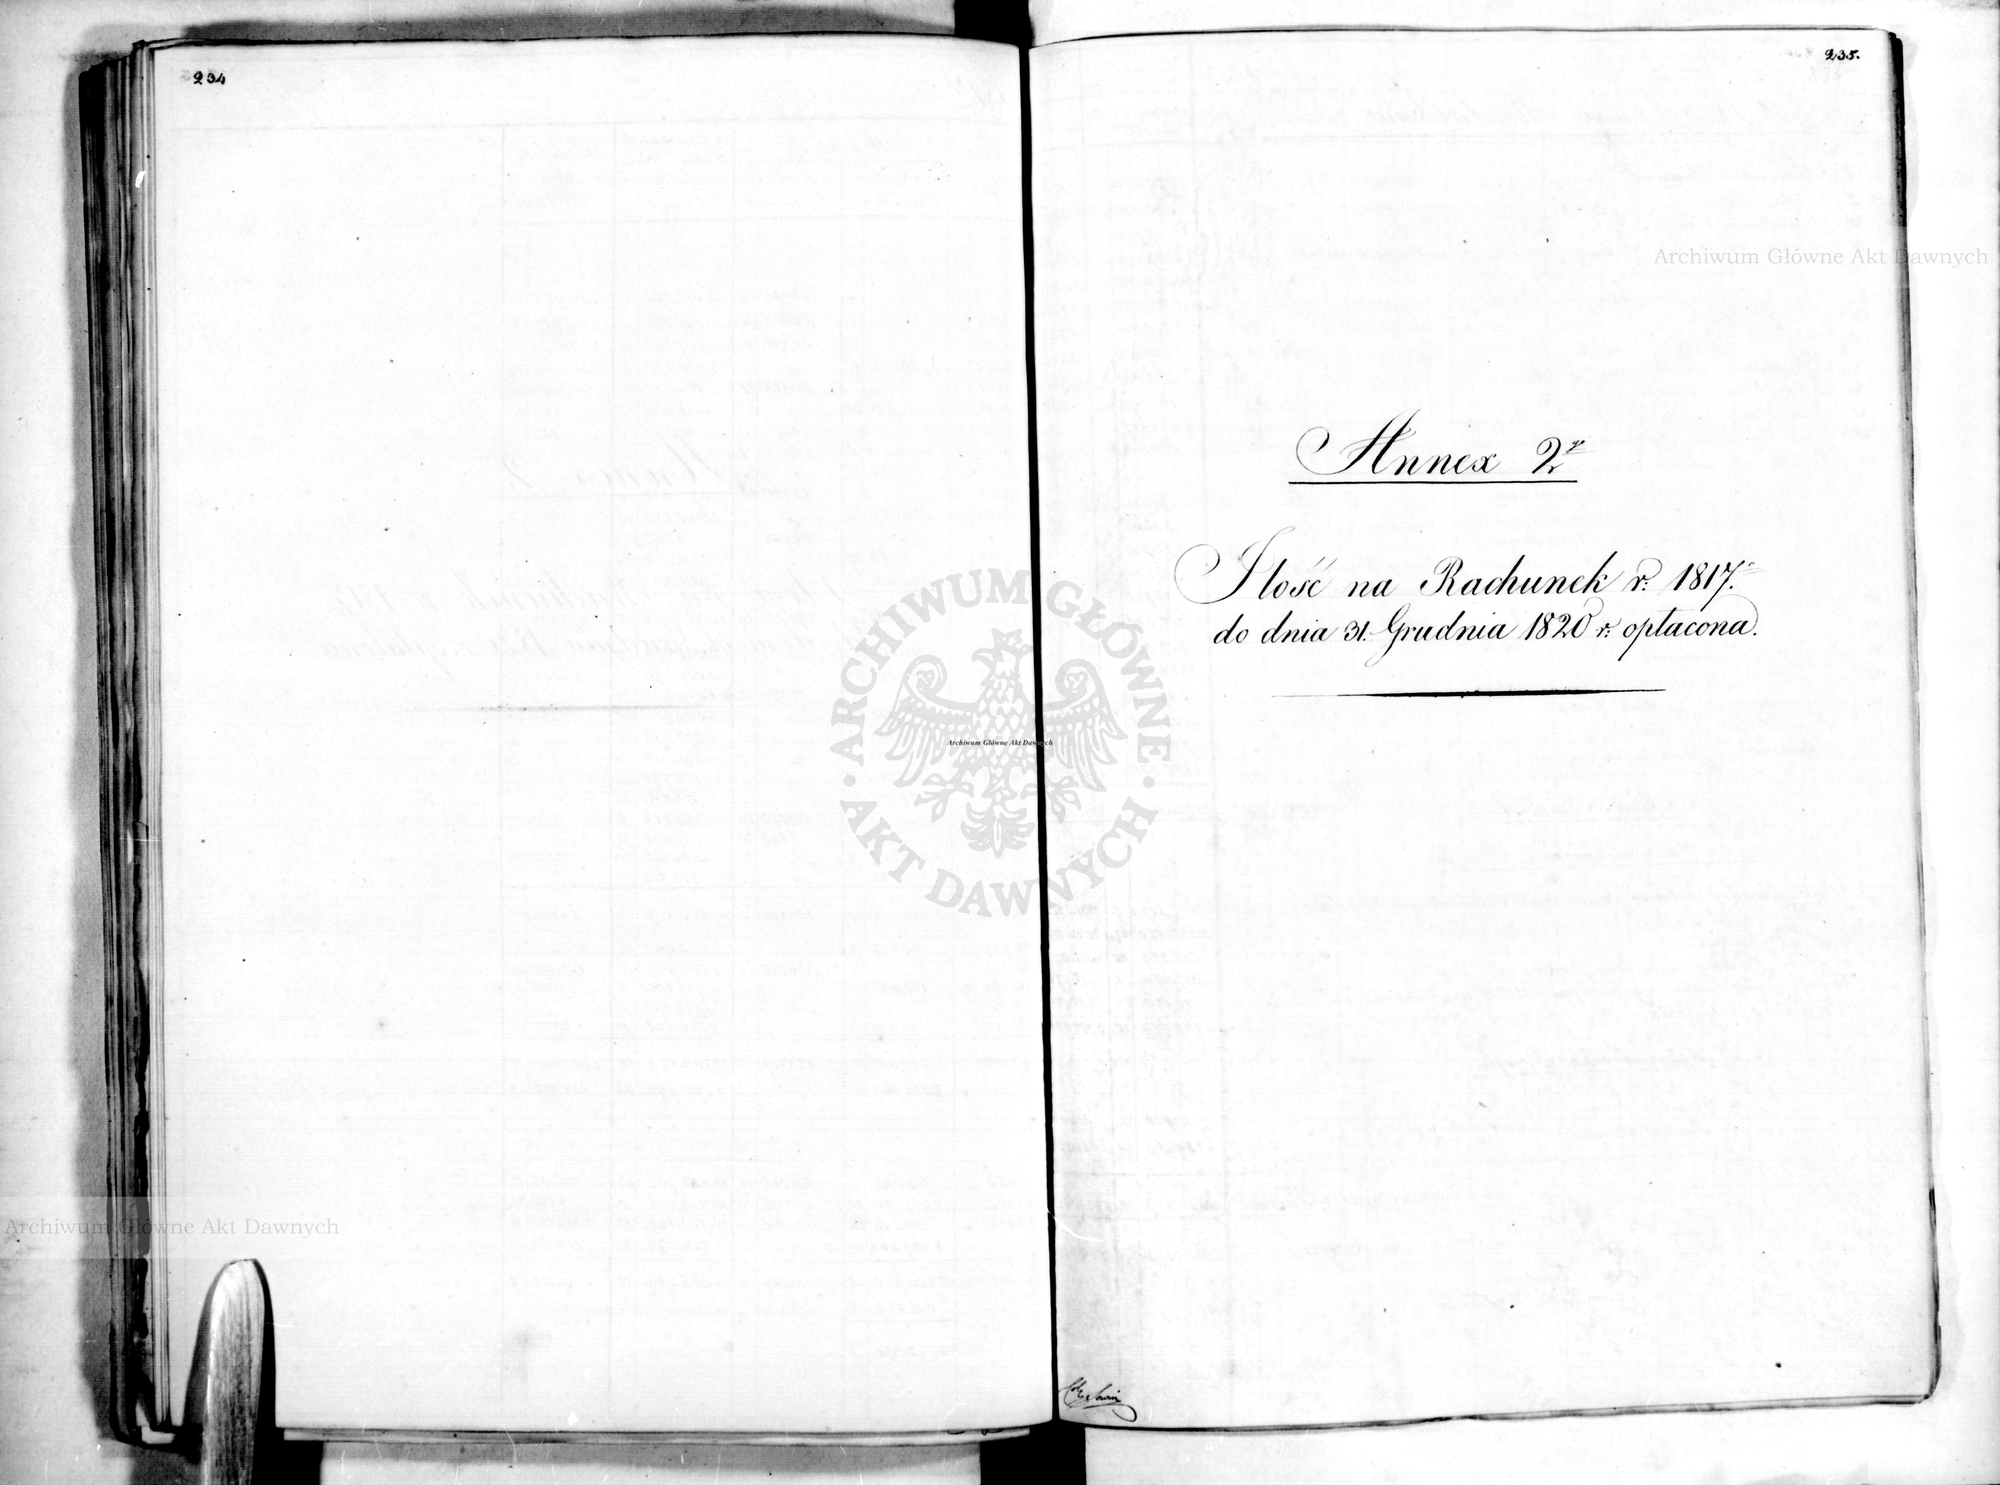 234
235.
Archiwum Główne Akt Dawnych
Annex 2gi
Ilość na Rachunek r. 1817.
do dnia 31. Grudnia 1820 r. opłacona.
ARCHIWUM GŁÓWNE AKT DAWNYCH
Archiwum Główne Akt Dawnych
Archiwum Główne Akt Dawnych